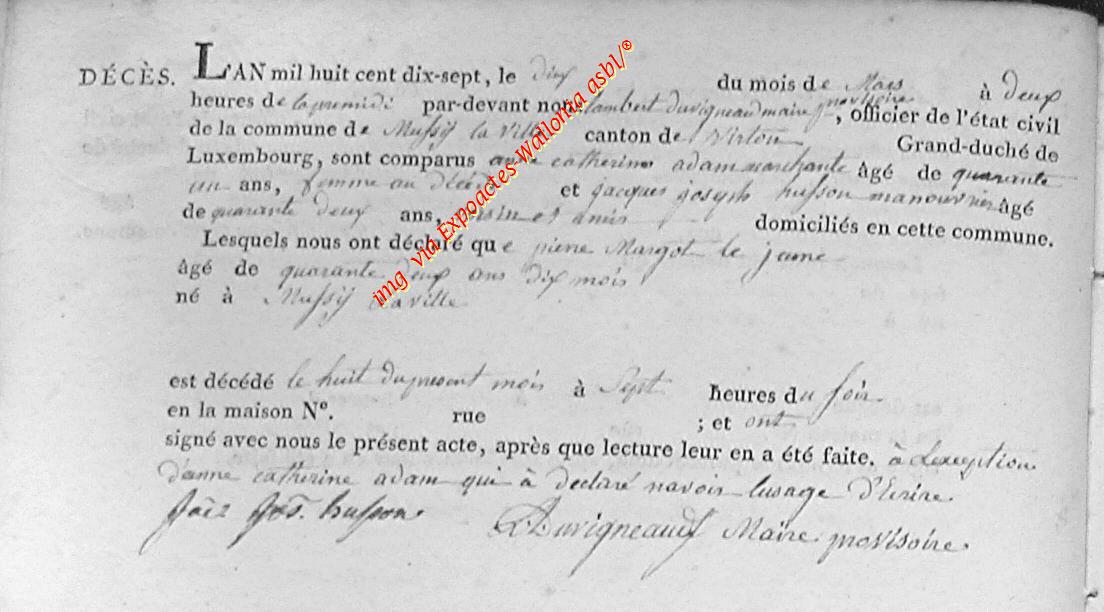 DÉCÈS. L'AN mil huit cent dix-sept, le dix du mois de Mars à deux
heures de lapremidi par-devant nous lambert duvigneaud maire provisoire, officier de l'état civil
de la commune de Mussÿ la Ville canton de Virton Grand-duché de
Luxembourg, sont comparus anne catherine adam marchante âgé de quarante
un ans, femme au décédé et jacques joseph husson manouvrier âgé
de quarante deux ans, voisin et amis domiciliés en cette commune.
Lesquels nous ont déclaré que pierre Margot le jeune
âgé de quarante deux ans dix mois
né à Mussÿ la ville
est décédé le huit du present mois à Sept heures du soir
en la maison N°. rue ; et ont
signé avec nous le présent acte, après que lecture leur en a été faite. à Lexception
danne catherine adam qui à declaré navoir lusage d'Ecrire.
Jos. husson Duvigneaud Maire provisoire.
img via Expoactes-Wallonia asbl/®